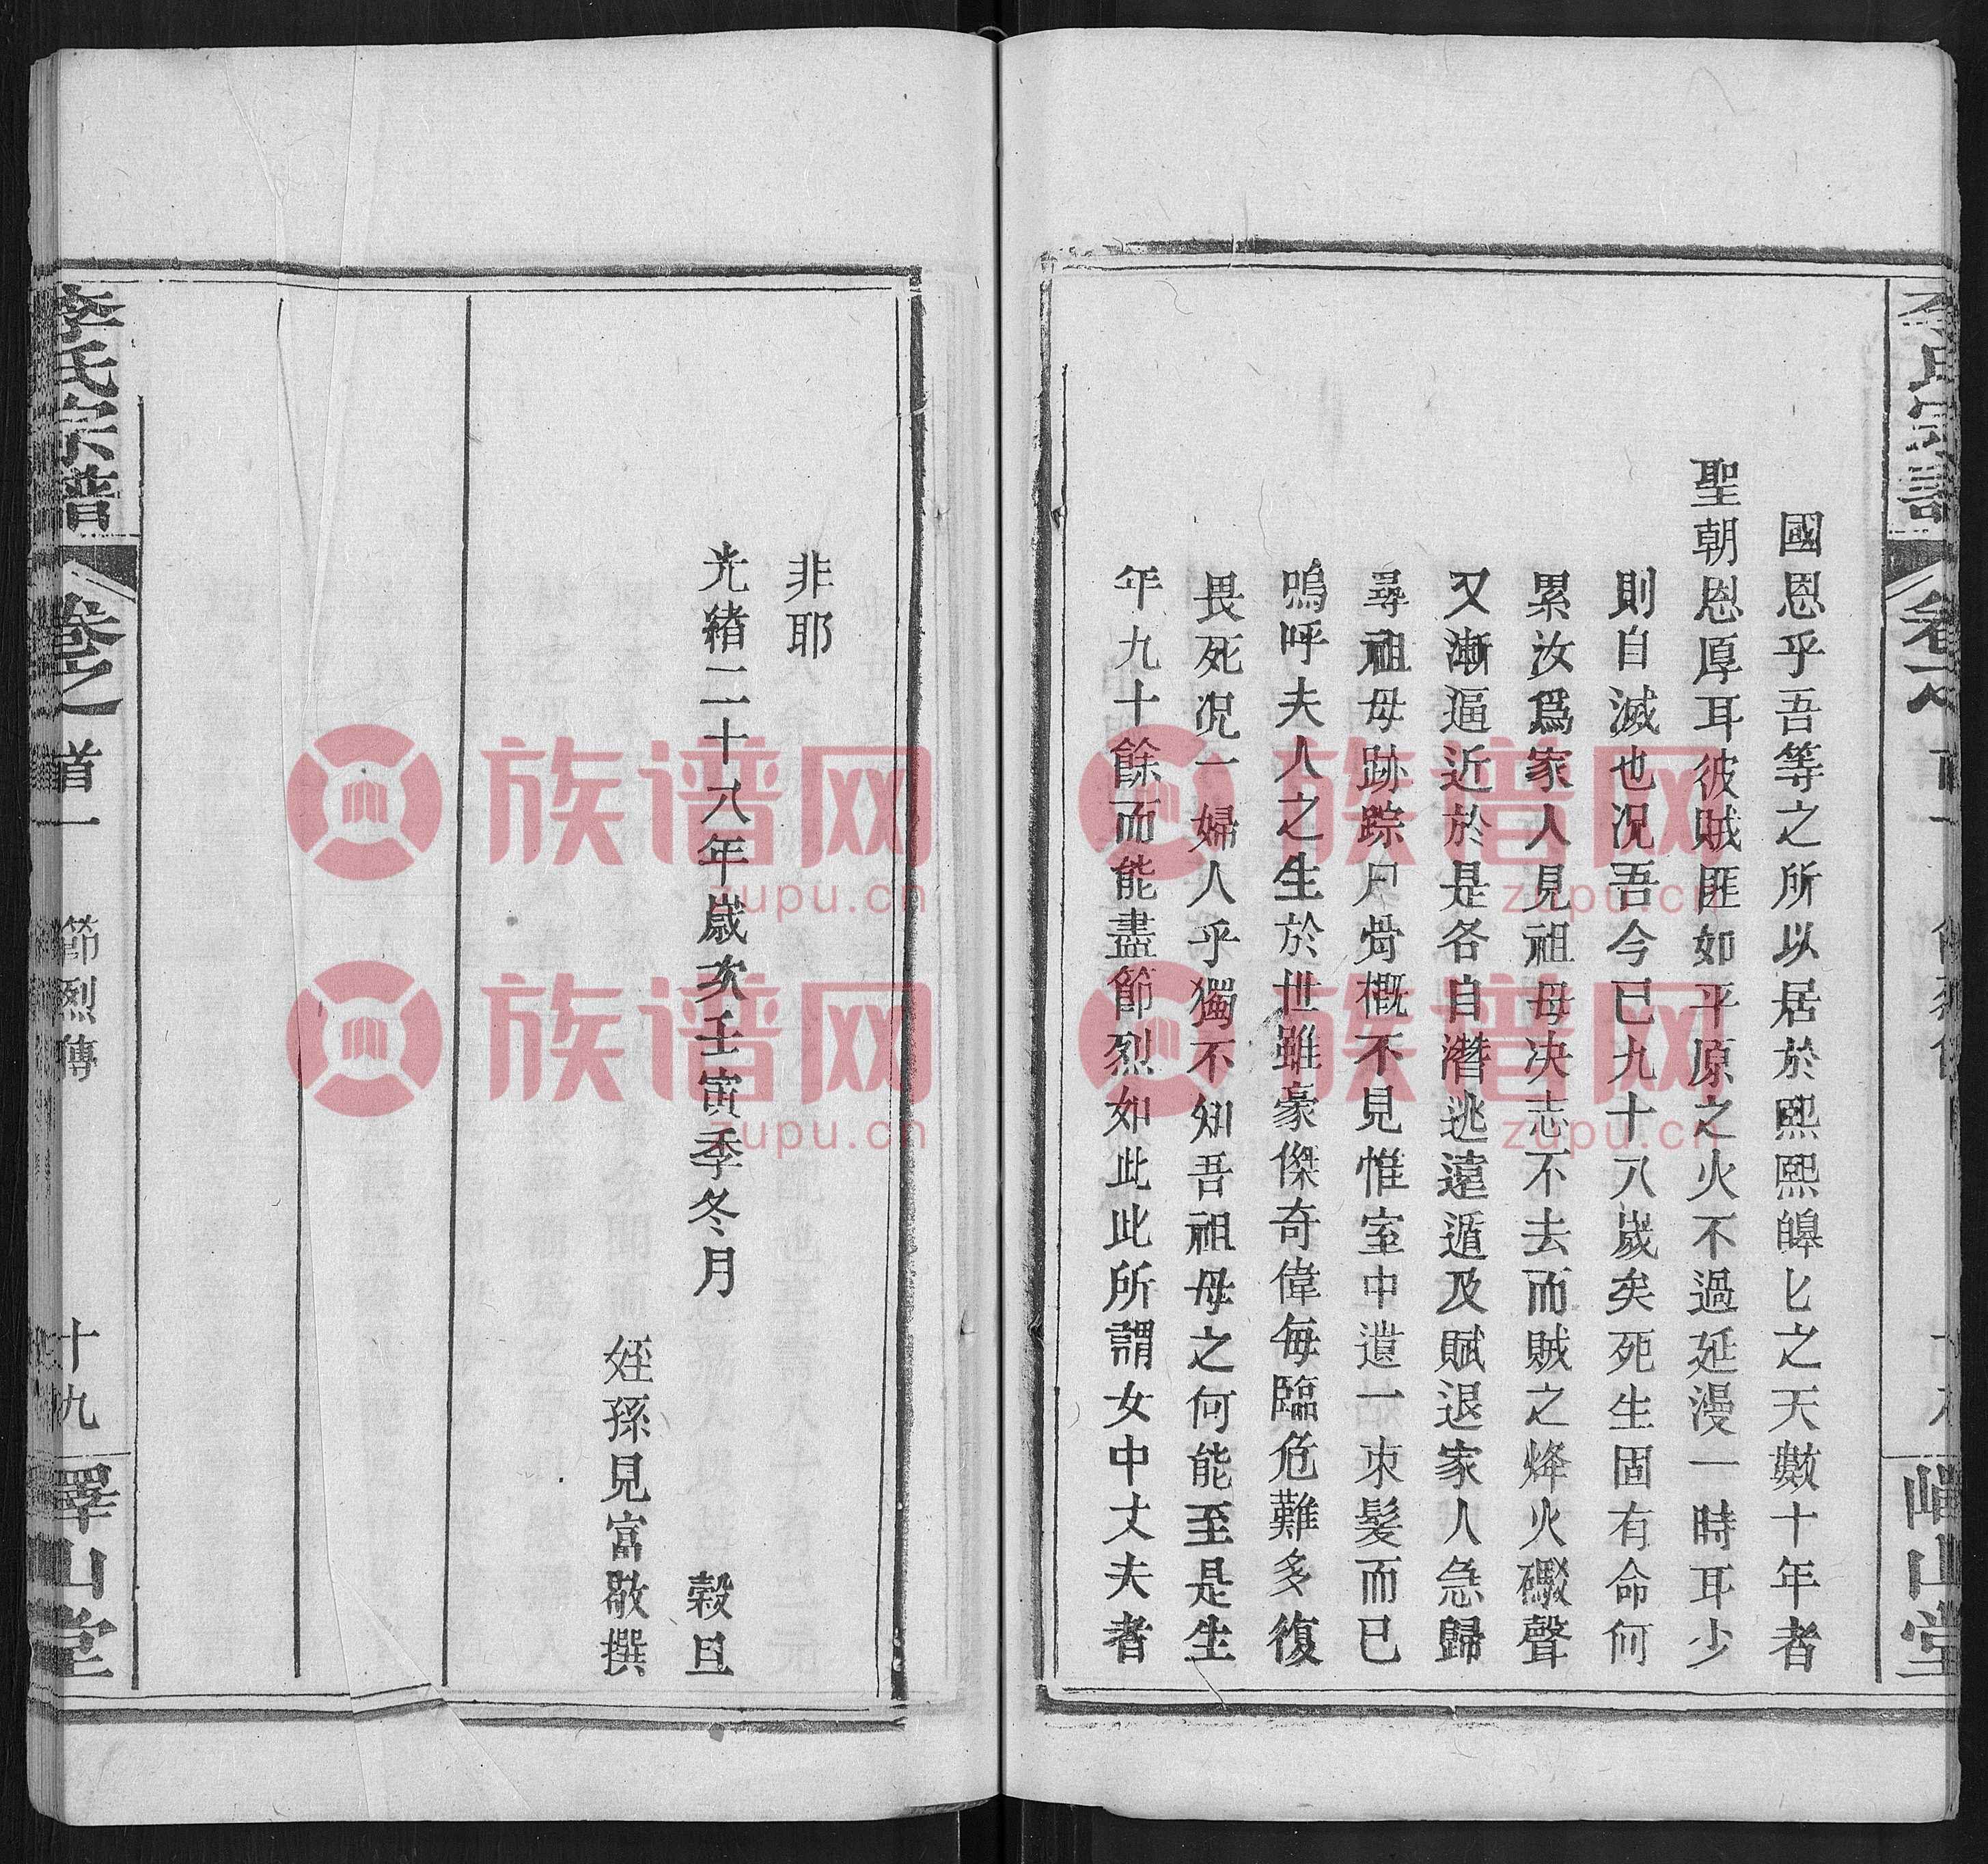 國恩乎吾等之所以居於熙熙皥匕之天數十年者
聖朝恩厚耳彼賊匪如平原之火不過延漫一時耳少
則自滅也况吾今已九十八歲矣死生固有命何
累汝爲家人見祖母决志不去而賊之烽火礮聲
又漸逼近於是各自潛逃遠遁及賊退家人急歸
尋祖母跡踪尸骨概不見惟室中遺一朿髮而已
嗚呼夫人之生於世雖豪傑奇偉每臨危難多復
畏死况一婦人乎獨不知吾祖母之何能至是生
年九十餘而能盡節烈如此此所謂女中丈夫者
非耶
光緒二十八年歲次壬寅季冬月　穀旦
姪孫見富敬撰
李氏宗譜　卷之首一　節烈傳　十九　嶧山堂
族谱网
zupu.cn
族谱网
zupu.cn
族谱网
zupu.cn
族谱网
zupu.cn